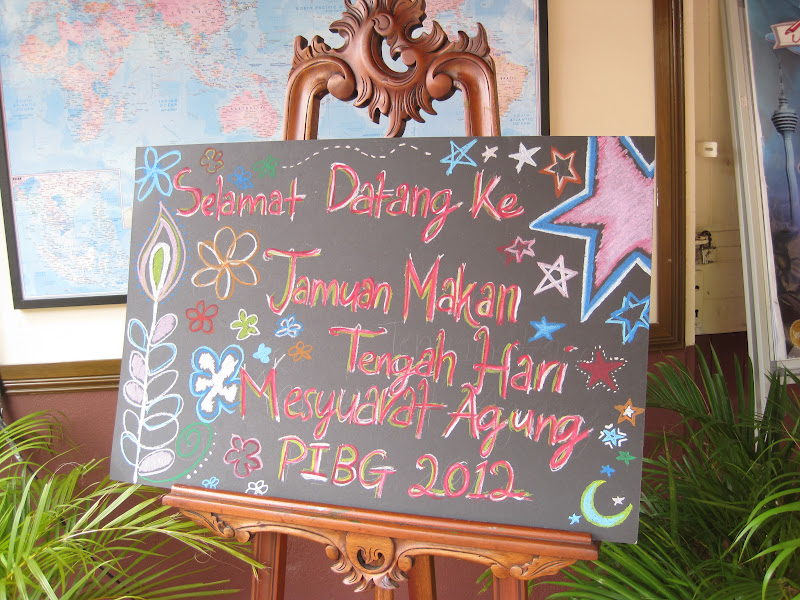 Selamat Datang Ke
Jamuan Makan
Tengah Hari
Mesyuarat Agung
PIBG 2012